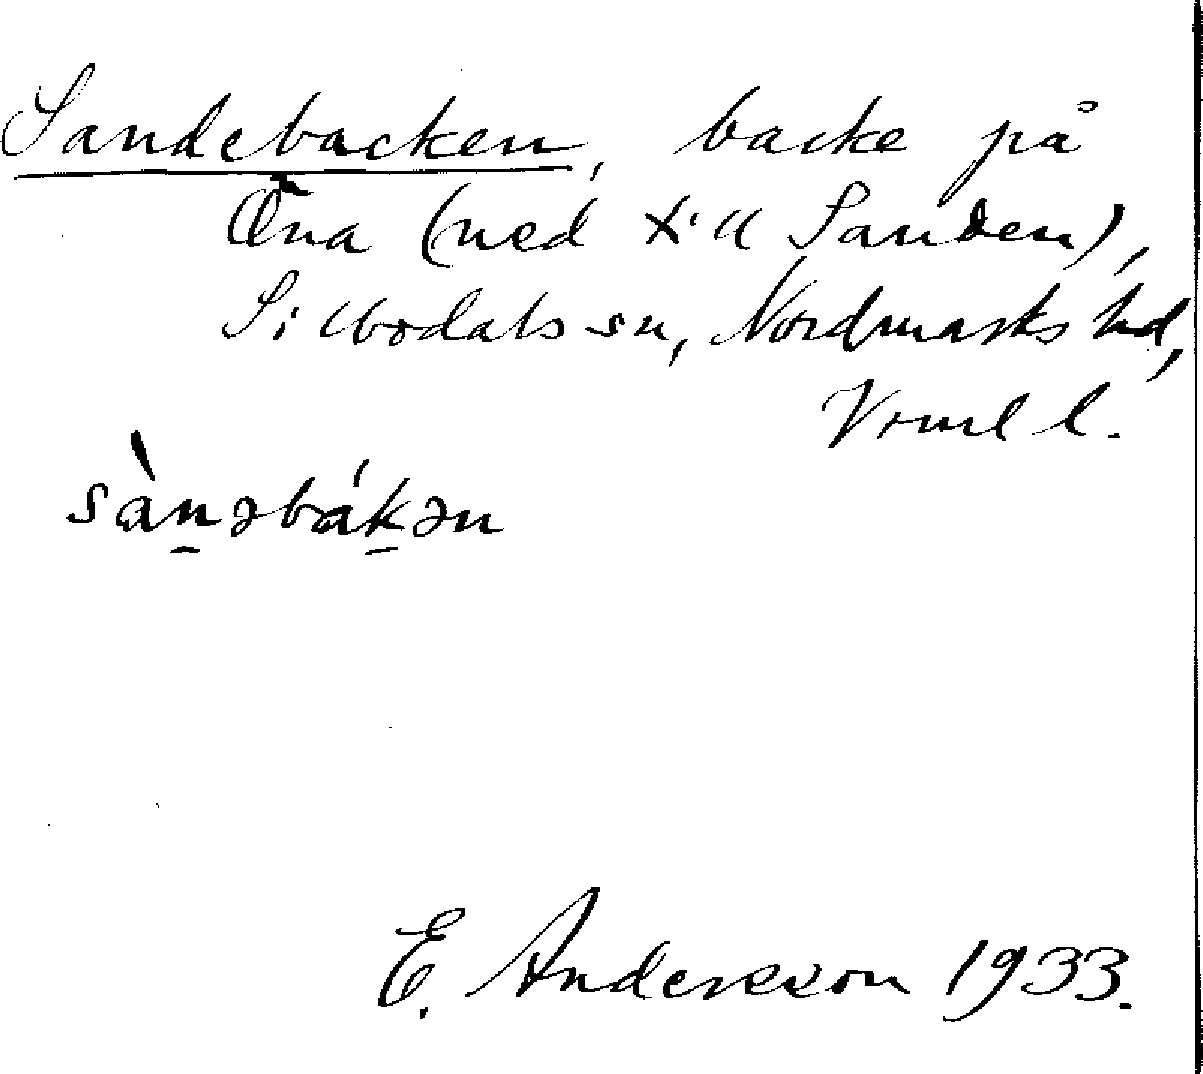 Sandebacken, backe på
Öna (ned till Sanden),
Sillbodals sn, Nordmarks hd,
Vrml l.
sàn̠əbák̠ən
E. Andersson 1933.